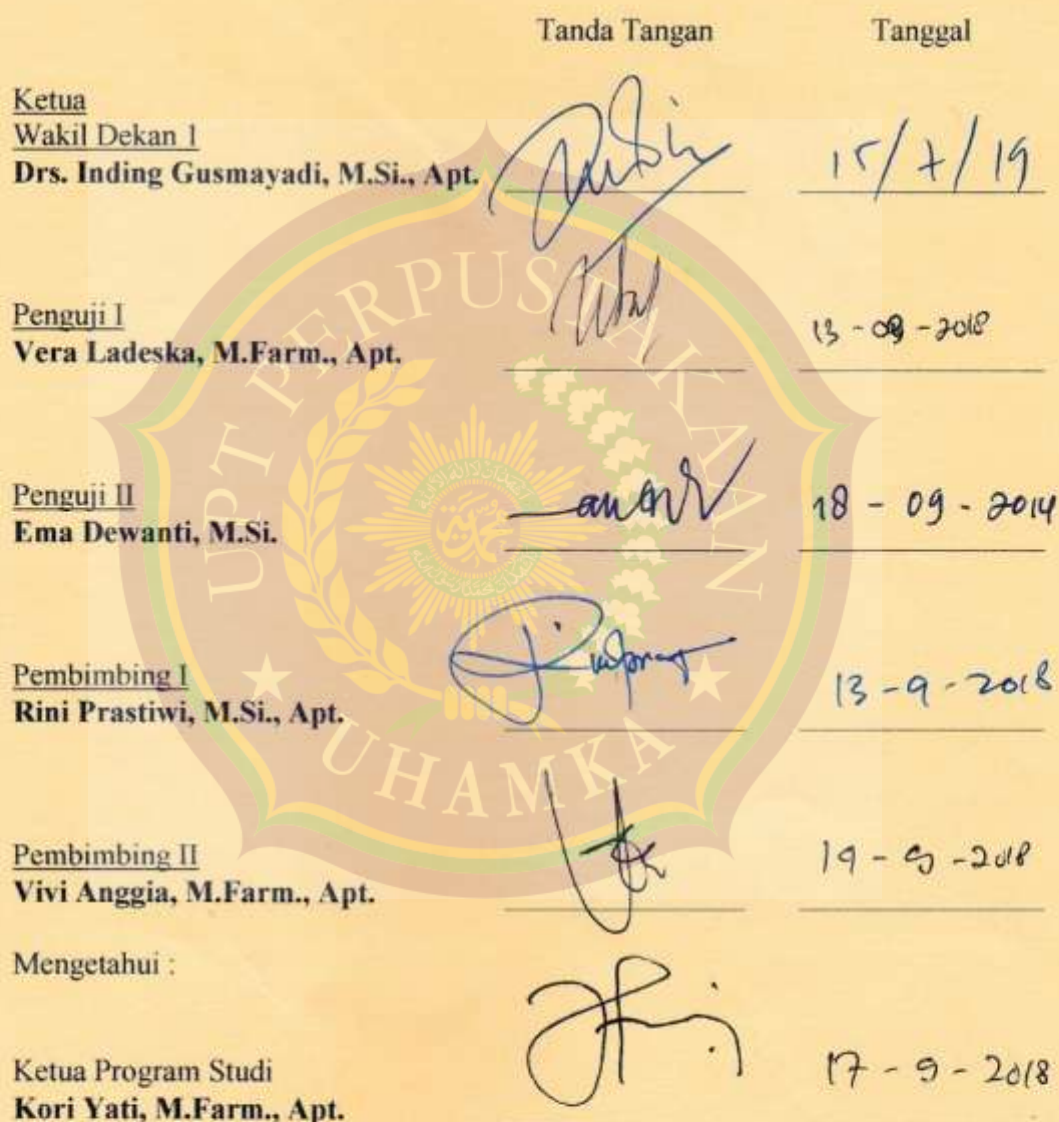 Tanda Tangan Tanggal
Ketua
Wakil Dekan 1
Drs. Inding Gusmayadi, M.Si., Apt. 15/7/19
Penguji I
Vera Ladeska, M.Farm., Apt. 13 - 09 - 2018
Penguji II
Ema Dewanti, M.Si. 18 - 09 - 2014
Pembimbing I
Rini Prastiwi, M.Si., Apt. 13 - 9 - 2018
Pembimbing II
Vivi Anggia, M.Farm., Apt. 19 - 9 - 2018
Mengetahui :
Ketua Program Studi
Kori Yati, M.Farm., Apt. 17 - 9 - 2018
UPT PERPUSTAKAAN
UHAMKA